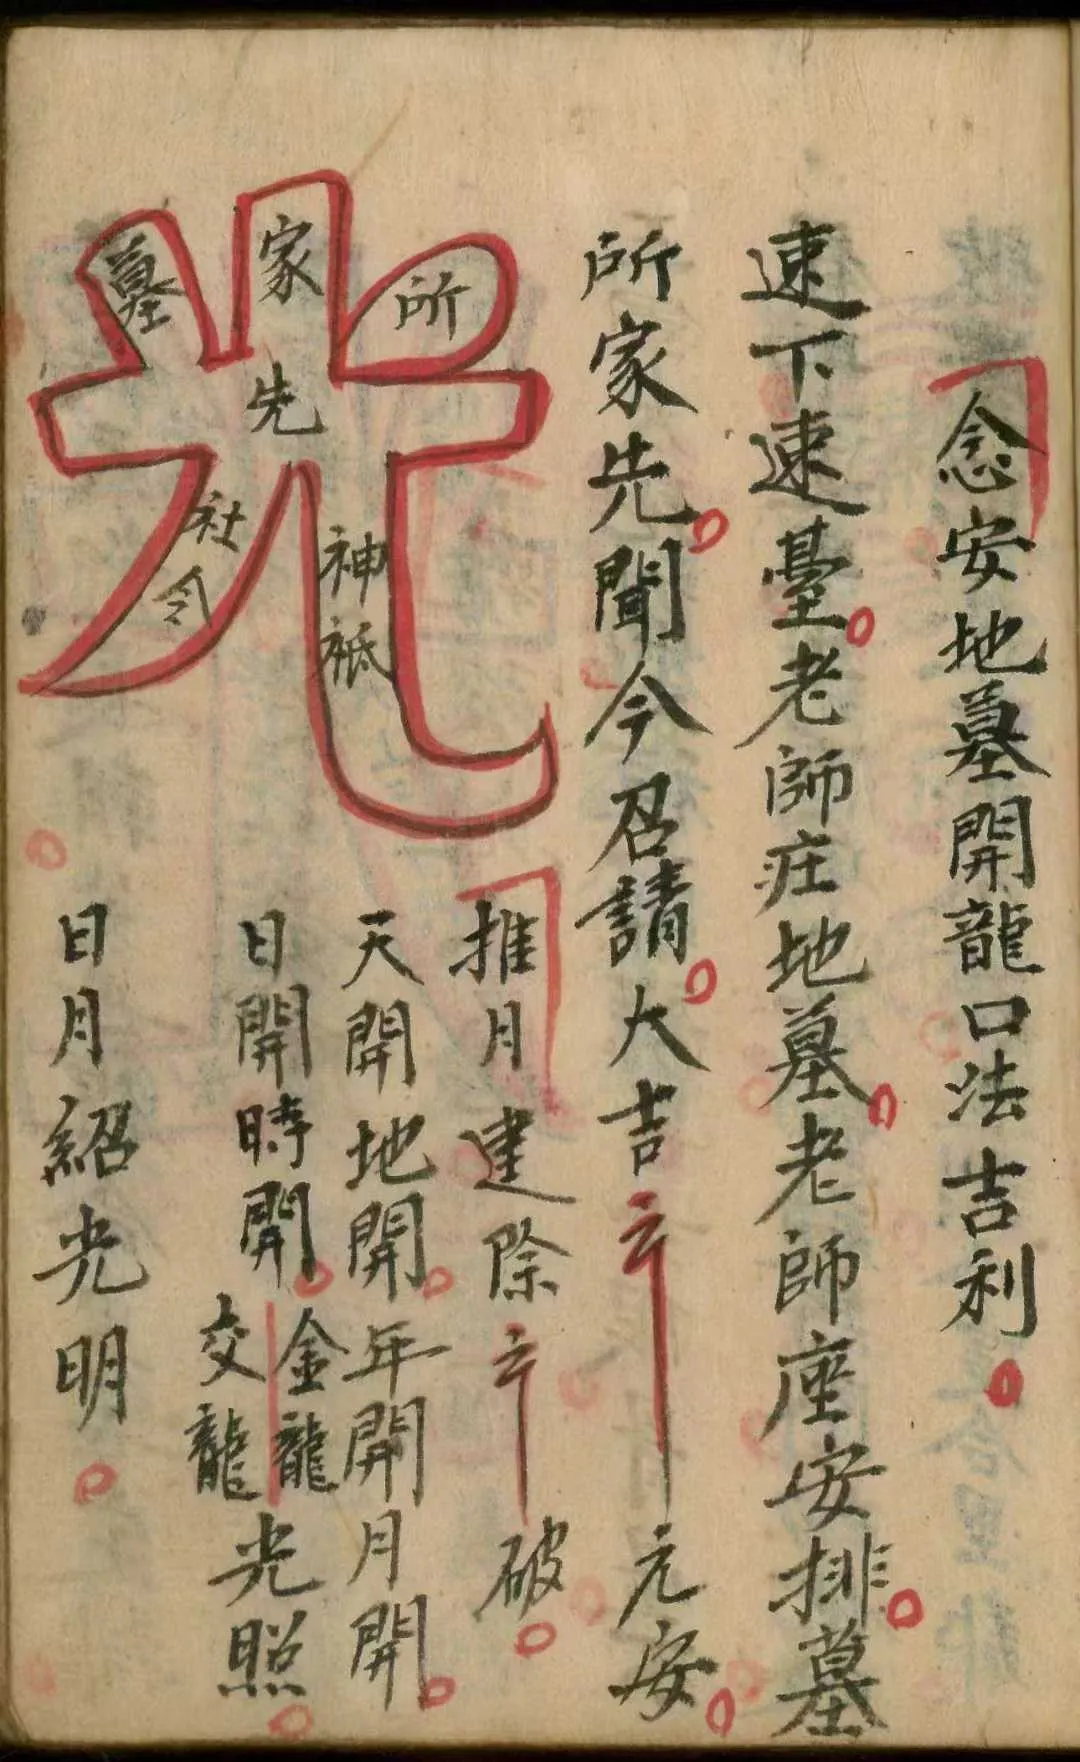 念安地墓開龍口法吉利
速下速臺老師庄地墓老師座安排墓
所家先聞今召請大吉元安
光
墓家所
先
社令神祗
推月建除破
天開地開年開月開
日開時開金龍交龍光照
日月紹光明